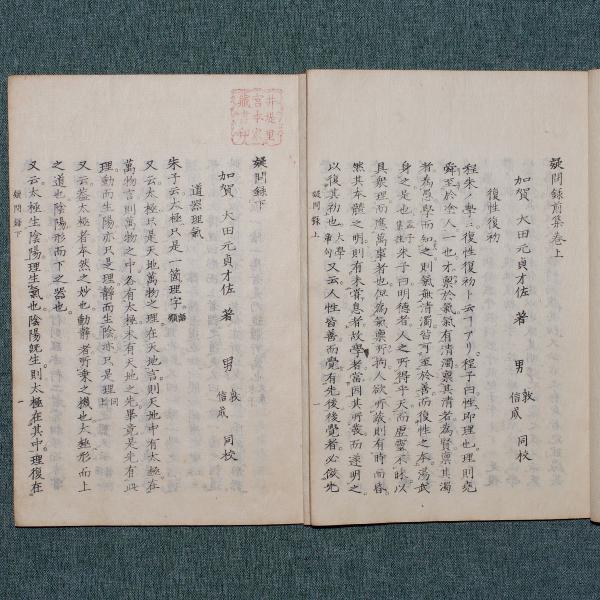 疑問録前集巻上
加賀 大田元貞才佐 著 男 敦 信成 同校
復性復初
程朱ノ學ニ復性復初ト云フアリ程子曰性即理也理則堯
舜至於塗人一也才稟於氣氣有清濁稟其清者為賢稟其濁
者為愚學而知之則氣無清濁皆可至於善而復性之本湯武
身之是也孟子集註朱子曰明德者人之所得乎天而虛靈不昧以
具衆理而應萬事者也但為氣稟所拘人欲所蔽則有時而昏
然其本體之明則有未嘗息者故學者當因其所發而遂明之
以復其初也大學章句又云人性皆善而覺有先後後覺者必傚先
疑問錄 上 一
井堤里宮本家藏書印
疑問錄下
加賀 大田元貞才佐 著 男 敦 信成 同校
道器理氣
朱子云太極只是一箇理字語類
又云太極只是天地萬物之理在天地言則天地中有太極在
萬物言則萬物之中各有太極未有天地之先畢竟是先有此
理動而生陽亦只是理靜而生陰亦只是理同上
又云蓋太極者本然之妙也動靜者所乘之機也太極形而上
之道也陰陽形而下之器也
又云太極生陰陽理生氣也陰陽既生則太極在其中理復在
疑問錄 下 一